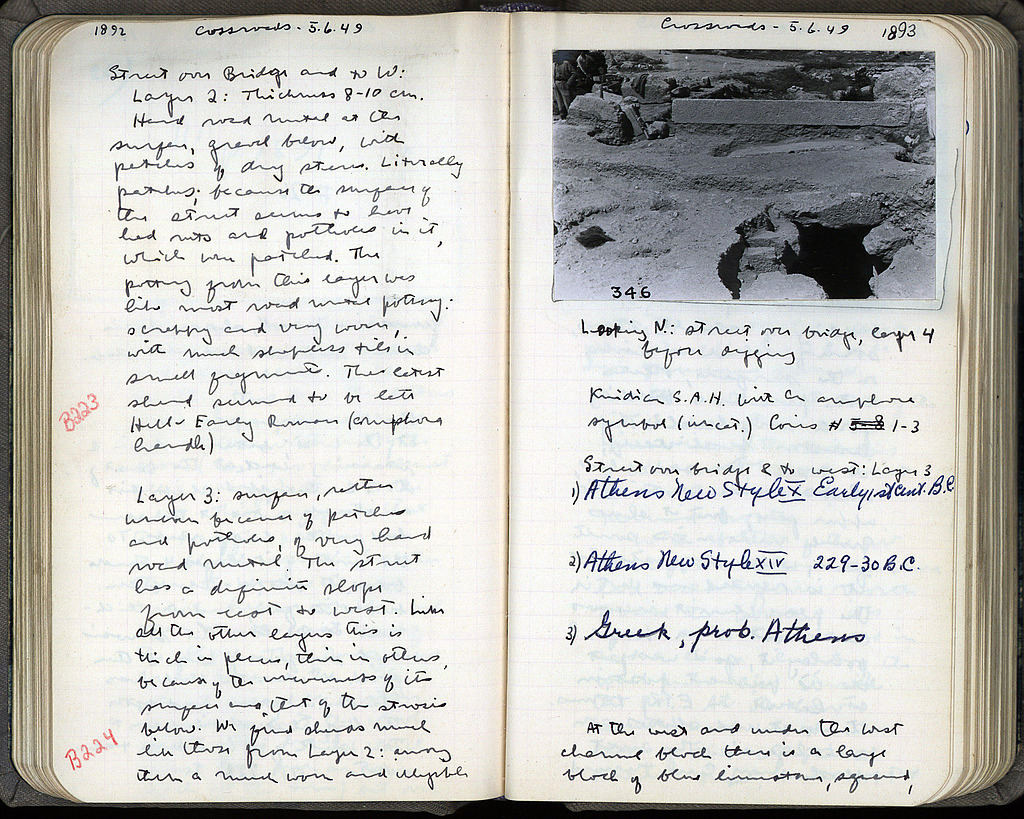 1892 Crossroads - 5.6.49
Street over Bridge and to W:
Layer 2: Thickness 8-10 cm.
Hard road metal at the
surface, gravel below, with
patches of dry stones. Literally
patches, because the surface of
the street seems to have
had ruts and potholes in it,
which were patched. The
pottery from this layer was
like most road metal pottery:
scrappy and very worn,
with much shapeless tile in
small fragments. The latest
sherd seemed to be late
B223
Hell - Early Roman (amphora
handle)
Layer 3: surface, rather
uneven because of patches
and potholes, of very hard
road metal. The street
has a definite slope
from east to west. Like
all the other layers this is
thick in places, thin in others,
because of the unevenness of its
surface and that of the
below. We found sherds much
B224
like those from Layer 2: among
them a much worn and illegible
Crossroads - 5.6.49 1893
346
Looking N.: street over bridge, layer 4
before digging
Knidian S.A.H. with an amphora
symbol (uncat.) Coins # 1-3
Street over bridge & to west: Layer 3
1) Athens New Style X Early 1st cent. B.C.
2) Athens New Style XIV 229-30 B.C.
3) Greek, prob. Athens
At the west and under the west
channel block there is a large
block of blue limestone, squared,